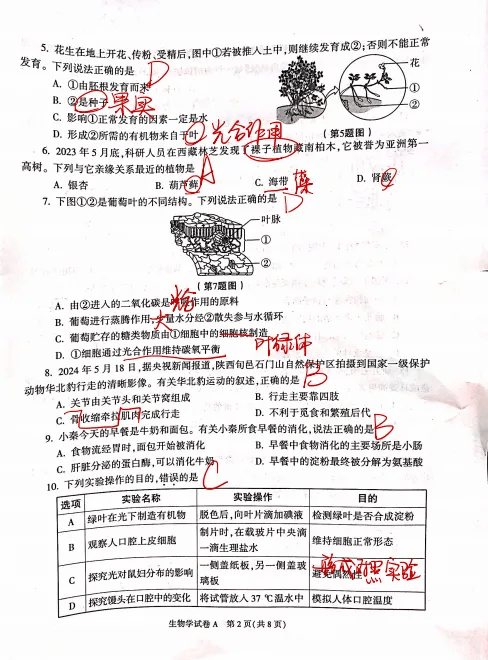 5. 花生在地上开花、传粉、受精后,图中①若被推入土中,则继续发育成②;否则不能正常
发育。下列说法正确的是 D
花
①
②
(第5题图)
A. ①由胚根发育而来
B. ②是种子 果实
C. 影响①正常发育的因素一定是水
D. 形成②所需的有机物来自于叶 光合作用
6. 2023年5月底,科研人员在西藏林芝发现了裸子植物藏南柏木,它被誉为亚洲第一
高树。下列与它亲缘关系最近的植物是 A
A. 银杏 B. 葫芦藓 C. 海带 藻 D. 肾蕨
7. 下图①②是葡萄叶的不同结构。下列说法正确的是 D
叶脉
①
②
(第7题图)
A. 由②进入的二氧化碳是 作用的原料 光合
B. 葡萄进行蒸腾作用,少量水分经②散失参与水循环 大
C. 葡萄贮存的糖类物质由①细胞中的细胞核制造 叶绿体
D. ①细胞通过光合作用维持碳氧平衡
8. 2024年5月18日,据央视新闻报道,陕西旬邑石门山自然保护区拍摄到国家一级保护
动物华北豹行走的清晰影像。有关华北豹运动的叙述,正确的是 B
A. 关节由关节头和关节窝组成 B. 行走主要靠四肢
C. 骨收缩牵拉肌肉完成行走 D. 不利于觅食和繁殖后代
9. 小秦今天的早餐是牛奶和面包。有关小秦所食早餐的消化,说法正确的是 B
A. 食物流经胃时,面包开始被消化 B. 早餐中食物消化的主要场所是小肠
C. 肝脏分泌的蛋白酶,可以消化牛奶 D. 早餐中的淀粉最终被分解为氨基酸
10. 下列实验操作的目的,错误的是 C
选项 实验名称 实验操作 目的
A 绿叶在光下制造有机物 脱色后,向叶片滴加碘液 检测绿叶是否合成淀粉
B 观察人口腔上皮细胞 制片时,在载玻片中央滴一滴生理盐水 维持细胞正常形态
C 探究光对鼠妇分布的影响 一侧盖纸板,另一侧盖玻璃板 避免偶然性 形成对照实验
D 探究馒头在口腔中的变化 将试管放入37℃温水中 模拟人体口腔温度
生物学试卷A 第2页(共8页)